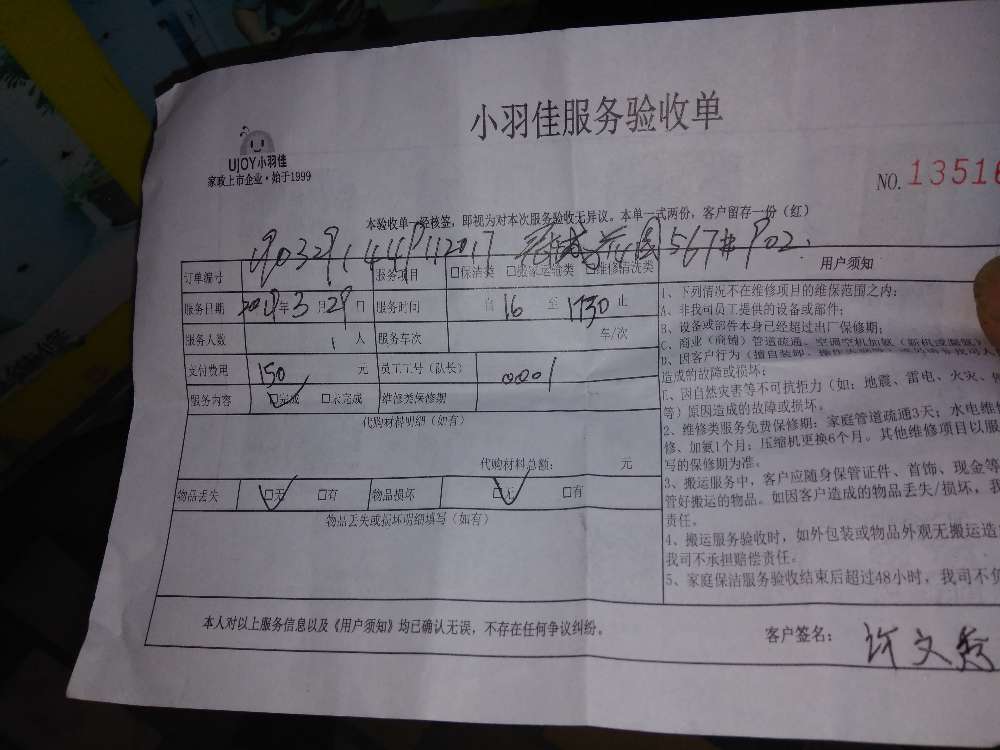 小羽佳服务验收单
UJOY小羽佳
家政上市企业·始于1999
NO. 13516
本验收单一经核签，即视为对本次服务验收无异议。本单一式两份，客户留存一份（红）
567#902
订单编号
服务项目 □保洁类 □搬家运输类 □维修清洗类
服务日期 2019年3月29日 服务时间 自16至1730止
服务人数 1人 服务车次 车/次
支付费用 150元 员工工号（队长） 0001
服务内容 □完成 □未完成 维修类保修期
代购材料明细（如有）
代购材料总额： 元
物品丢失 □无 □有 物品损坏 □无 □有
物品丢失或损坏明细填写（如有）
用户须知
1、下列情况不在维修项目的维保范围之内：
A、非我司员工提供的设备或部件；
B、设备或部件本身已经超过出厂保修期；
C、商业（商铺）管道疏通、空调空机加氨（新机或漏氨）
D、因客户行为（擅自装卸、
造成的故障或损坏；
E、因自然灾害等不可抗拒力（如：地震、雷电、火灾、
等）原因造成的故障或损坏。
2、维修类服务免费保修期：家庭管道疏通3天；水电维
修、加氨1个月；压缩机更换6个月。其他维修项目以服
写的保修期为准。
3、搬运服务中，客户应随身保管证件、首饰、现金等
管好搬运的物品。如因客户造成的物品丢失/损坏，我
责任。
4、搬运服务验收时，如外包装或物品外观无搬运造
我司不承担赔偿责任。
5、家庭保洁服务验收结束后超过48小时，我司不负
本人对以上服务信息以及《用户须知》均已确认无误，不存在任何争议纠纷。
客户签名： 许文秀